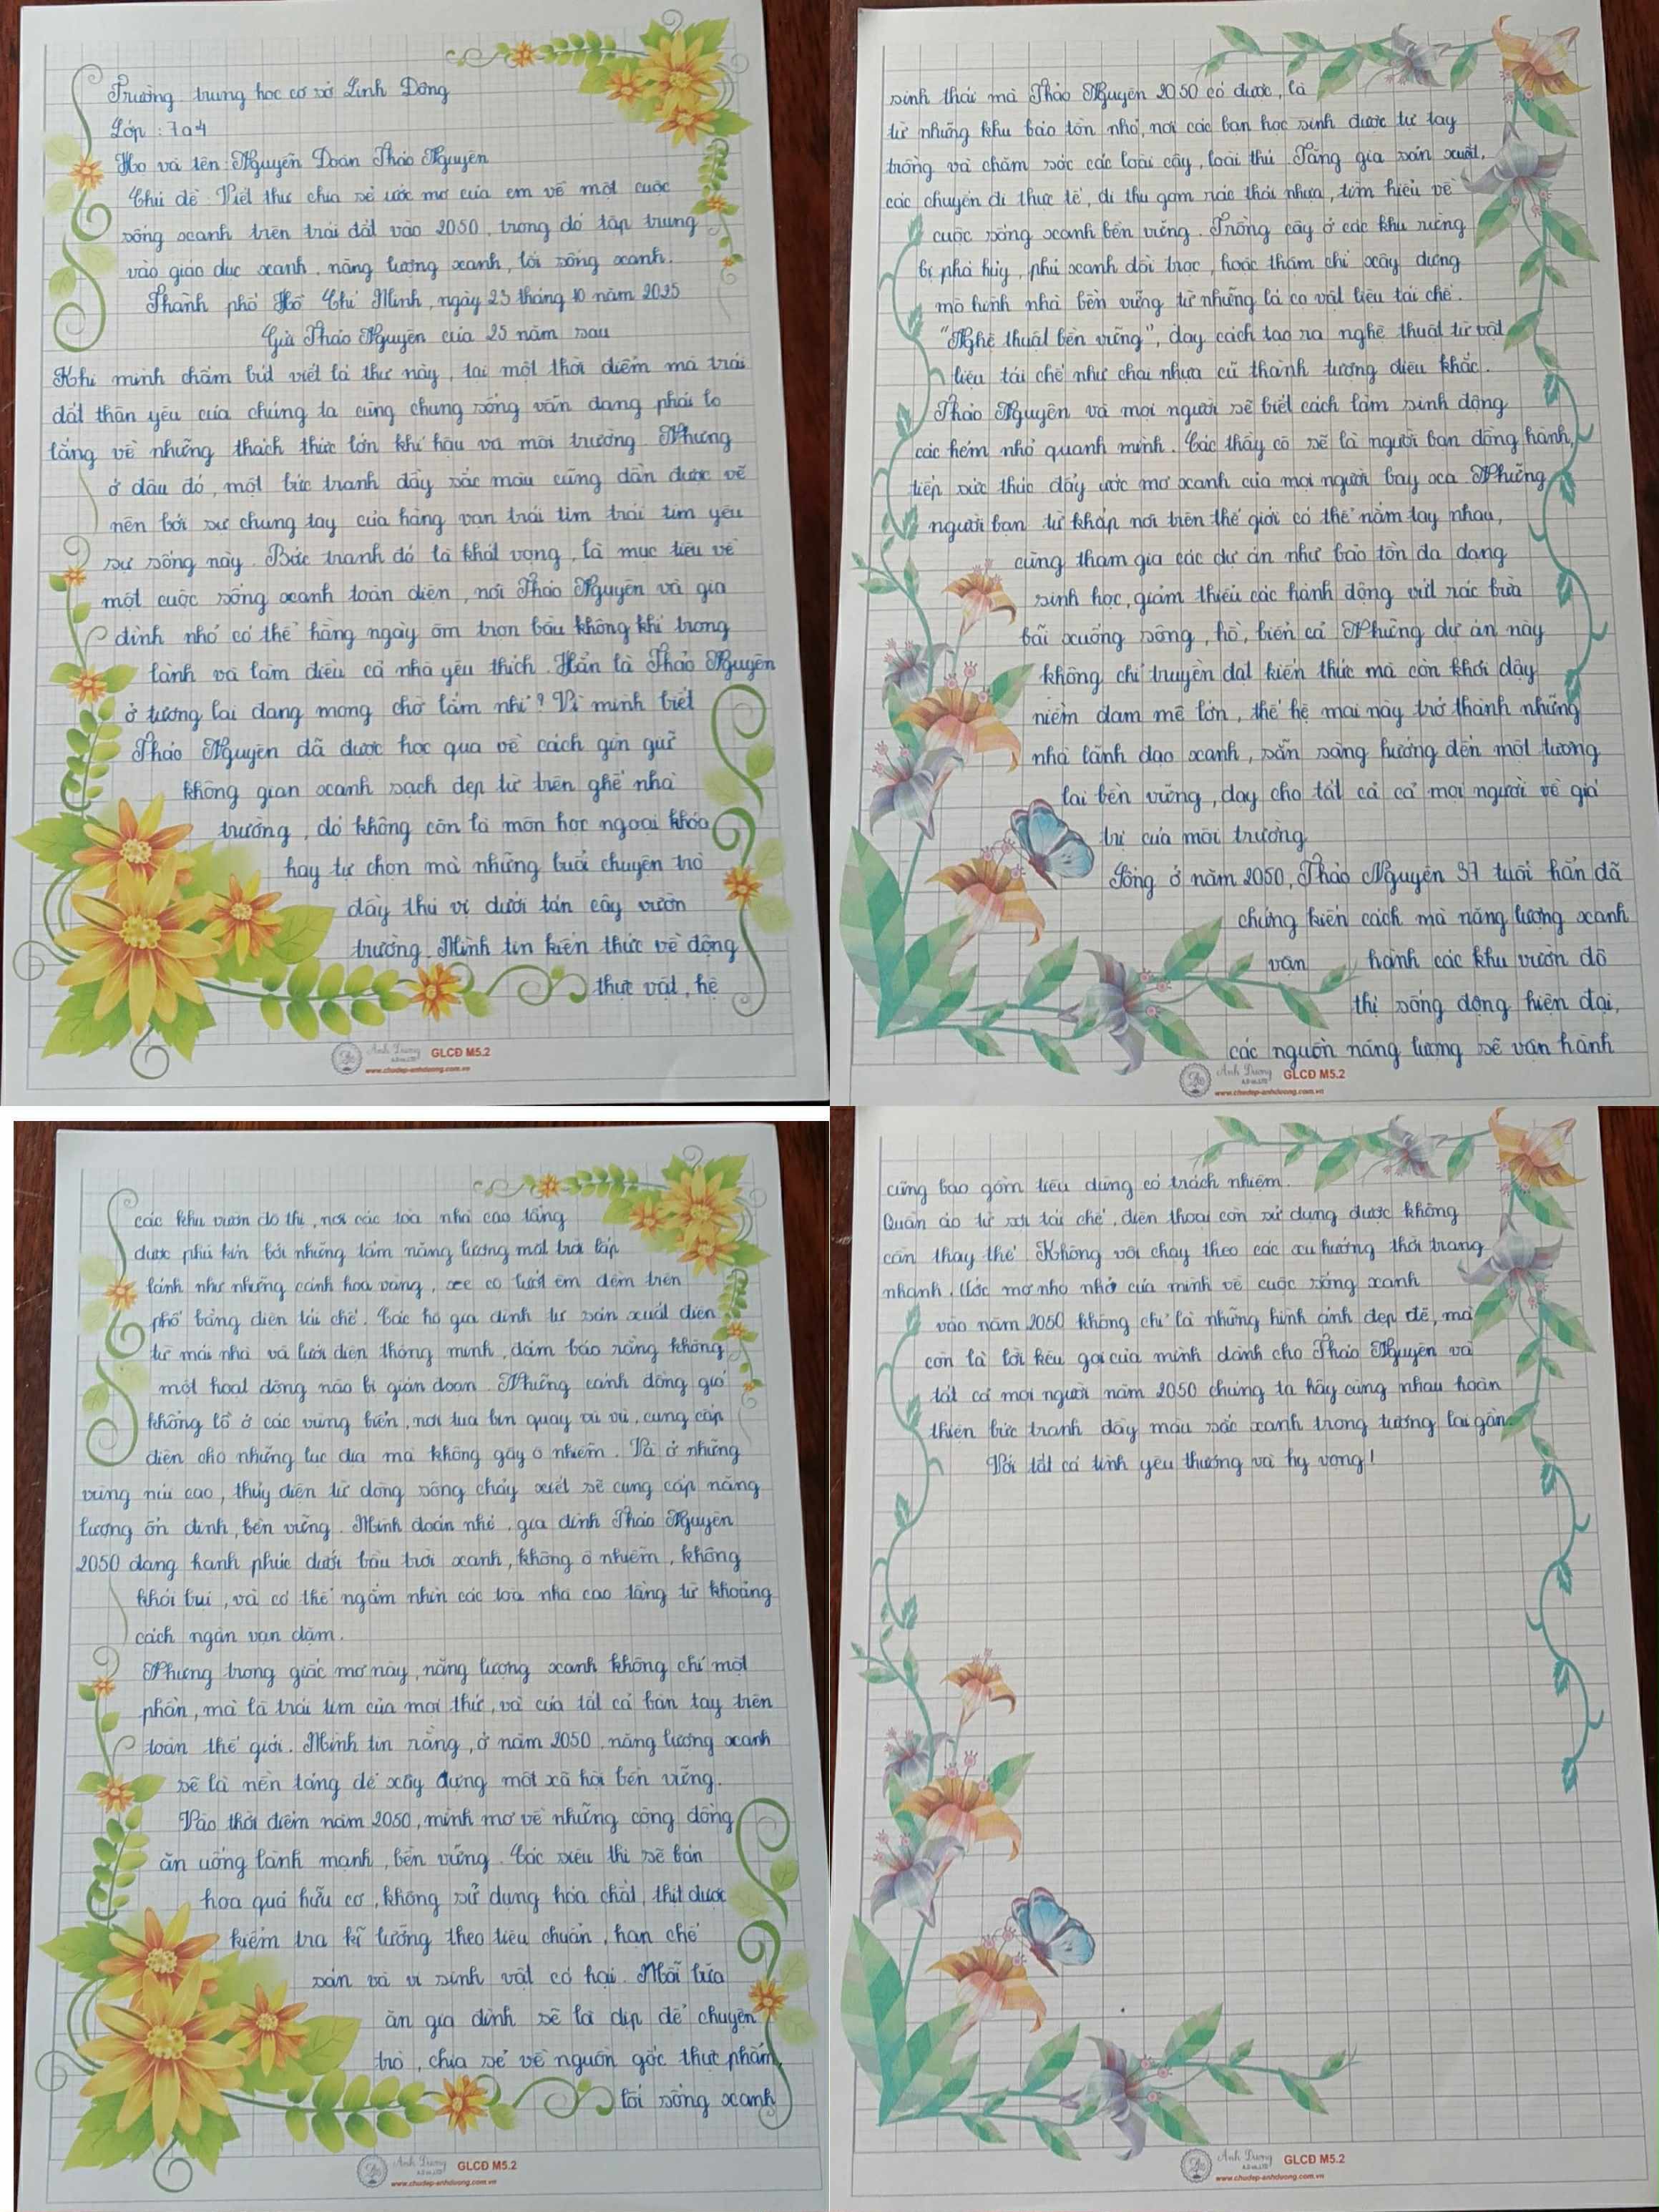 Trường trung học cơ sở Linh Đông
Lớp : 7a4
Họ và tên : Nguyễn Đoàn Thảo Nguyên
Chủ đề : Viết thư chia sẻ ước mơ của em về một cuộc
sống xanh trên trái đất vào 2050, trong đó tập trung
vào giáo dục xanh, năng lượng xanh, lối sống xanh.
Thành phố Hồ Chí Minh, ngày 23 tháng 10 năm 2025
Gửi Thảo Nguyên của 25 năm sau
Khi mình chấm bút viết lá thư này, tại một thời điểm mà trái
đất thân yêu của chúng ta cũng chung sống vẫn đang phải lo
lắng về những thách thức lớn khí hậu và môi trường. Nhưng
ở đâu đó, một bức tranh đầy sắc màu cũng dần được vẽ
nên bởi sự chung tay của hàng vạn trái tim trái tim yêu
sự sống này. Bức tranh đó là khát vọng, là mục tiêu về
một cuộc sống xanh toàn diện, nơi Thảo Nguyên và gia
đình nhỏ có thể hằng ngày ôm trọn bầu không khí trong
lành và làm điều cả nhà yêu thích. Hẳn là Thảo Nguyên
ở tương lai đang mong chờ lắm nhỉ? Vì mình biết
Thảo Nguyên đã được học qua về cách gìn giữ
không gian xanh sạch đẹp từ trên ghế nhà
trường, đó không còn là môn học ngoại khóa
hay tự chọn mà những buổi chuyện trò
đầy thú vị dưới tán cây vườn
trường. Mình tin kiến thức về động
thực vật, hệ
sinh thái mà Thảo Nguyên 2050 có được, là
từ những khu bảo tồn nhỏ, nơi các bạn học sinh được tự tay
trồng và chăm sóc các loài cây, loài thú. Tăng gia sản xuất,
các chuyến đi thực tế, đi thu gom rác thải nhựa, tìm hiểu về
cuộc sống xanh bền vững. Trồng cây ở các khu rừng
bị phá hủy, phủ xanh đồi trọc, hoặc thậm chí xây dựng
mô hình nhà bền vững từ những lá cọ vật liệu tái chế.
"Nghệ thuật bền vững", dạy cách tạo ra nghệ thuật từ vật
liệu tái chế như chai nhựa cũ thành tượng điêu khắc.
Thảo Nguyên và mọi người sẽ biết cách làm sinh động
các hẻm nhỏ quanh mình. Các thầy cô sẽ là người bạn đồng hành,
tiếp sức thúc đẩy ước mơ xanh của mọi người bay xa. Những
người bạn từ khắp nơi trên thế giới có thể nắm tay nhau,
cùng tham gia các dự án như bảo tồn đa dạng
sinh học, giảm thiểu các hành động vứt rác bừa
bãi xuống sông, hồ, biển cả. Những dự án này
không chỉ truyền đạt kiến thức mà còn khơi dậy
niềm đam mê lớn, thế hệ mai này trở thành những
nhà lãnh đạo xanh, sẵn sàng hướng đến một tương
lai bền vững, dạy cho tất cả cả mọi người về giá
trị của môi trường
Sống ở năm 2050, Thảo Nguyên 37 tuổi hẳn đã
chứng kiến cách mà năng lượng xanh
vận hành các khu vườn đô
thị sống động hiện đại,
các nguồn năng lượng sẽ vận hành
các khu vườn đô thị, nơi các tòa nhà cao tầng
được phủ kín bởi những tấm năng lượng mặt trời lấp
lánh như những cánh hoa vàng, xe cộ lướt êm đềm trên
phố bằng điện tái chế. Các hộ gia đình tự sản xuất điện
từ mái nhà và lưới điện thông minh, đảm bảo rằng không
một hoạt động nào bị gián đoạn. Những cánh đồng gió
khổng lồ ở các vùng biển, nơi tua bin quay vù vù, cung cấp
điện cho những lục địa mà không gây ô nhiễm. Và ở những
vùng núi cao, thủy điện từ dòng sông chảy xiết sẽ cung cấp năng
lượng ổn định, bền vững. Mình đoán nhé, gia đình Thảo Nguyên
2050 đang hạnh phúc dưới bầu trời xanh, không ô nhiễm, không
khói bụi, và có thể ngắm nhìn các tòa nhà cao tầng từ khoảng
cách ngàn vạn dặm.
Nhưng trong giấc mơ này, năng lượng xanh không chỉ một
phần, mà là trái tim của mọi thứ, và của tất cả bàn tay trên
toàn thế giới. Mình tin rằng, ở năm 2050, năng lượng xanh
sẽ là nền tảng để xây dựng một xã hội bền vững.
Vào thời điểm năm 2050, mình mơ về những cộng đồng
ăn uống lành mạnh, bền vững. Các siêu thị sẽ bán
hoa quả hữu cơ, không sử dụng hóa chất, thịt được
kiểm tra kĩ lưỡng theo tiêu chuẩn, hạn chế
sán và vi sinh vật có hại. Mỗi bữa
ăn gia đình sẽ là dịp để chuyện
trò, chia sẻ về nguồn gốc thực phẩm,
lối sống xanh
cũng bao gồm tiêu dùng có trách nhiệm.
Quần áo từ sợi tái chế, điện thoại còn sử dụng được không
cần thay thế. Không vội chạy theo các xu hướng thời trang
nhanh. Ước mơ nho nhỏ của mình về cuộc sống xanh
vào năm 2050 không chỉ là những hình ảnh đẹp đẽ, mà
còn là lời kêu gọi của mình dành cho Thảo Nguyên và
tất cả mọi người năm 2050 chúng ta hãy cùng nhau hoàn
thiện bức tranh đầy màu sắc xanh trong tương lai gần.
Với tất cả tình yêu thương và hy vọng!
Ánh Dương GLCĐ M5.2
www.chudep-anhduong.com.vn
Ánh Dương GLCĐ M5.2
www.chudep-anhduong.com.vn
Ánh Dương GLCĐ M5.2
www.chudep-anhduong.com.vn
Ánh Dương GLCĐ M5.2
www.chudep-anhduong.com.vn